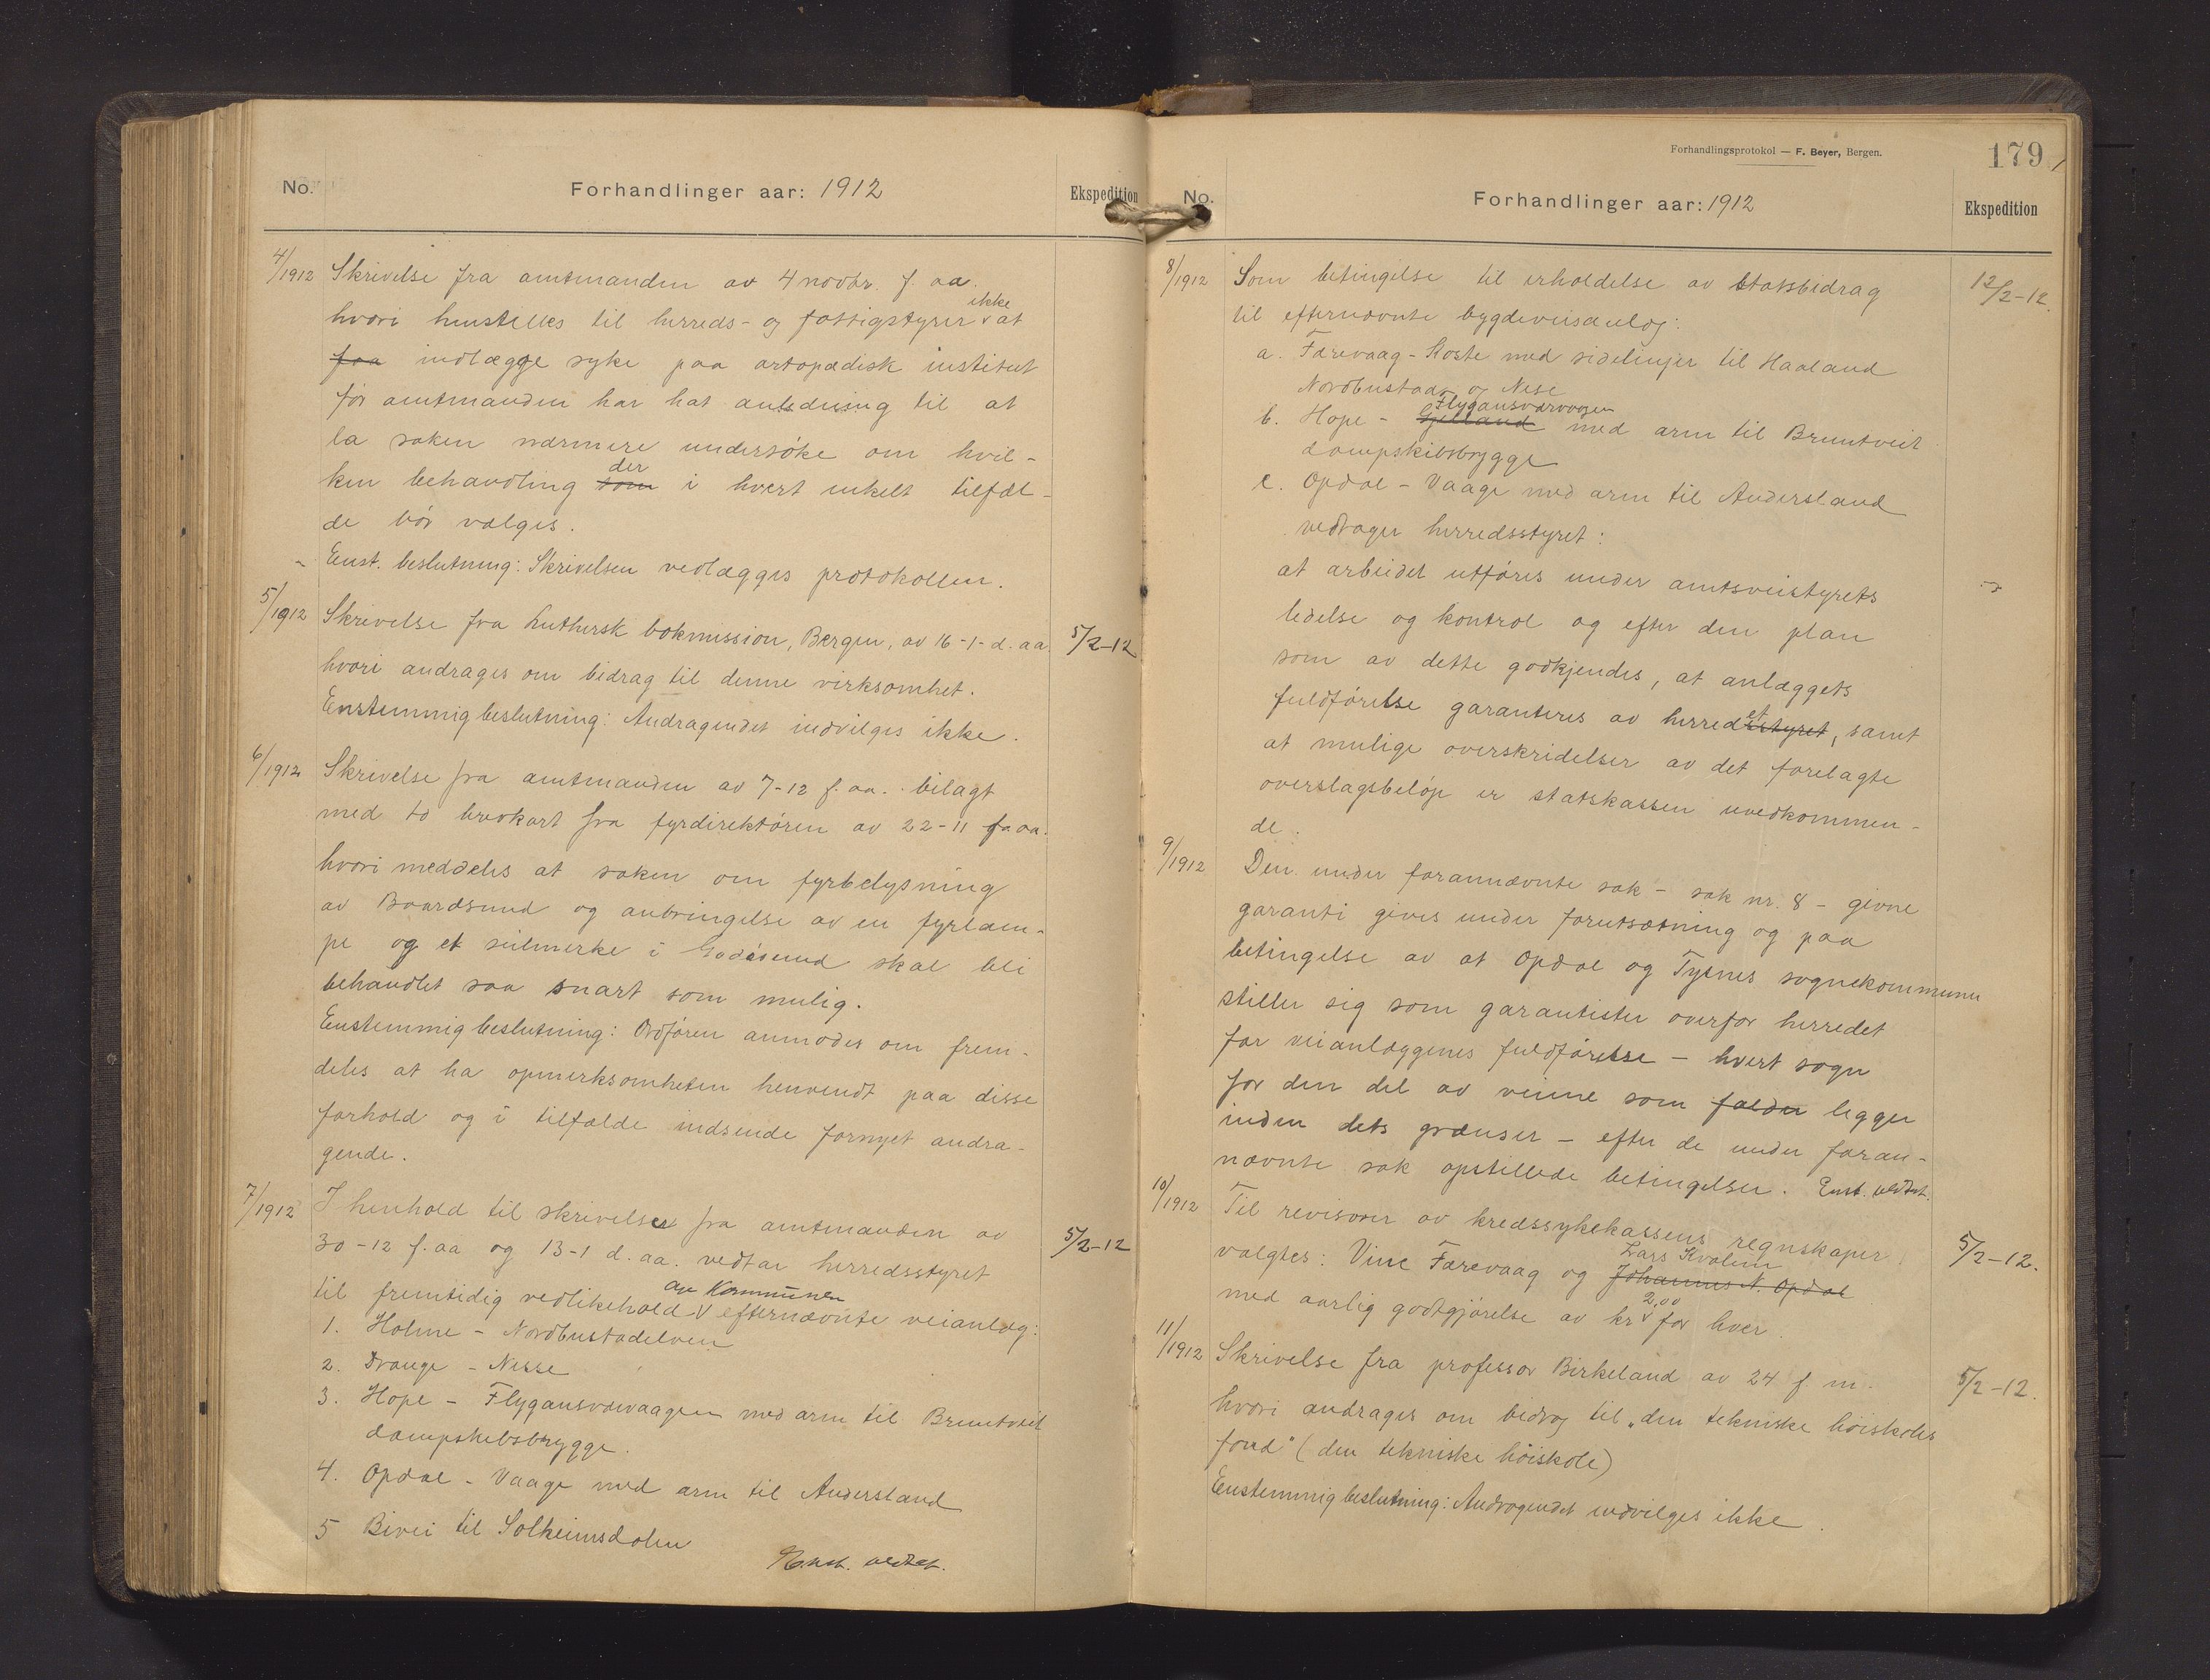 No. Forhandlinger aar: 1912 Ekspedition
4/1912 Skrivelse fra amtmanden av 4 novbr. f. aa.
hvori henstilles til herreds- og fattigstyrer ikke at
faa indlægge syke paa ortopædisk institut
før amtmanden har hat anledning til at
la saken nærmere undersøke om hvil-
ken behandling som der i hvert enkelt tilfæl-
de bør vælges.
Enst. beslutning: Skrivelsen vedlægges protokollen.
5/1912 Skrivelse fra Luthersk bokmission, Bergen, av 16-1- d. aa. 5/2-12
hvori andrages om bidrag til denne virksomhet.
Enstemmig beslutning: Andragendet indvilges ikke.
6/1912 Skrivelse fra amtmanden av 7-12 f. aa. bilagt
med to brevkort fra fyrdirektøren av 22-11 f. aa.
hvori meddeles at saken om fyrbelysning
av Baardsund og anbringelse av en fyrlam-
pe og et seilmerke i Godøsund skal bli
behandlet saa snart som mulig.
Enstemmig beslutning: Ordføren anmodes om frem-
deles at ha opmerksomheten henvendt paa disse
forhold og i tilfælde indsende fornyet andra-
gende.
7/1912 I henhold til skrivelser fra amtmanden av
30-12 f. aa og 13-1 d. aa. vedtar herredsstyret 5/2-12
til fremtidig vedlikehold av Kommunen efternævnte veianlæg:
1. Holme - Nordbustadelven
2. Drange - Nesse
3. Hope - Flygansværvaagen med arm til Bruntveit
dampskibsbrygge.
4. Opdal - Vaage med arm til Andersland
5 Bivei til Solheimsdalen
Enst. vedtat.
Forhandlingsprotokol — F. Beyer, Bergen. 179
No. Forhandlinger aar: 1912 Ekspedition
8/1912 Som betingelse til erholdelse av statsbidrag 12/2-12.
til efternævnte bygdeveisanlæg:
a. Færevaag - Koste med sidelinjer til Haaland
Nordbustad og Nese
b. Hope - Gjelland Flygansværvaagen med arm til Bruntveit
dampskibsbrygge
c. Opdal - Vaage med arm til Andersland
vedtager herredsstyret:
at arbeidet utføres under amtsveistyrets
ledelse og kontrol og efter den plan
som av dette godkjendes, at anlæggets
fuldførelse garanteres av herredsstyret et, samt
at mulige overskridelser av det forelagte
overslagsbeløp er statskassen uvedkommen-
de.
9/1912 Den under forannævnte sak - sak nr. 8 - givne
garanti gives under forutsætning og paa
betingelse av at Opdal og Tysnes sognekommuner
stiller sig som garantister overfor herredet
for veianlæggenes fuldførelse — hvert sogn
for den del av veiene som falder ligger
inden dets grænser — efter de under foran-
nævnte sak opstillede betingelser. Enst. vedtat.
10/1912 Til revisorer av kredssykekassens regnskaper
valgtes: Vine Færevaag og Johannes N. Opdal Lars Kvalem 5/2-12.
med aarlig godtgjørelse av kr 2,00 for hver.
11/1912 Skrivelse fra professor Birkeland av 24 f m. 5/2-12.
hvori andrages om bidrag til „den tekniske høiskoles
fond" (den tekniske høiskole)
Enstemmig beslutning: Andragendet indvilges ikke.